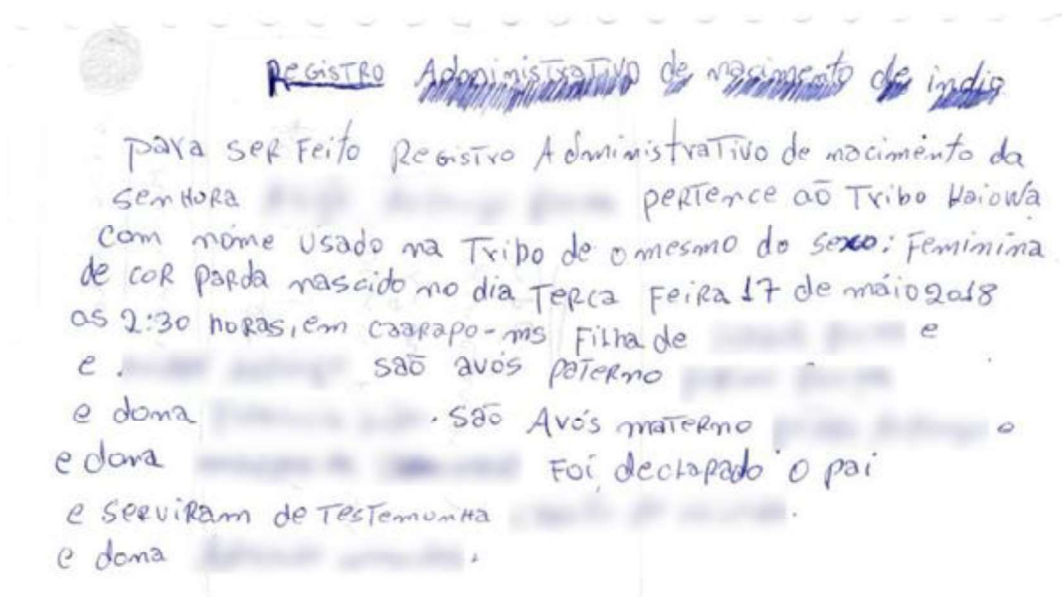 Registro Administrativo de nacimento de indio
para ser Feito Registro Administrativo de nacimento da
senhora pertence aõ Tribo Kaiowa
com nome usado na Tribo de o mesmo do sexo: Feminina
de cor parda nascido no dia Terca Feira 17 de máio 2018
as 2:30 horas, em caarapo-ms Filha de e
e . saõ avós paterno
e dona . saõ Avós materno e
e dona Foi declarado o pai
e serviram de Testemunha .
e dona .